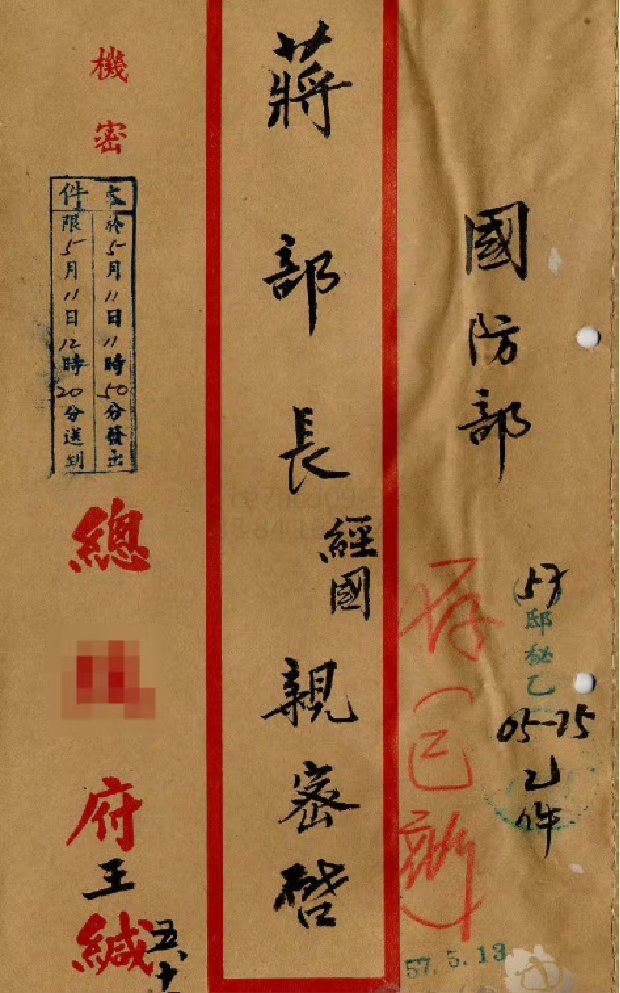 國防部
(57)
邸秘乙
05-75
乙件
存(已辦)
57.5.13
蔣部長經國親密啓
機密
文於5月11日11時50分發出
件限5月11日12時20分送到
總
府王緘
五、十